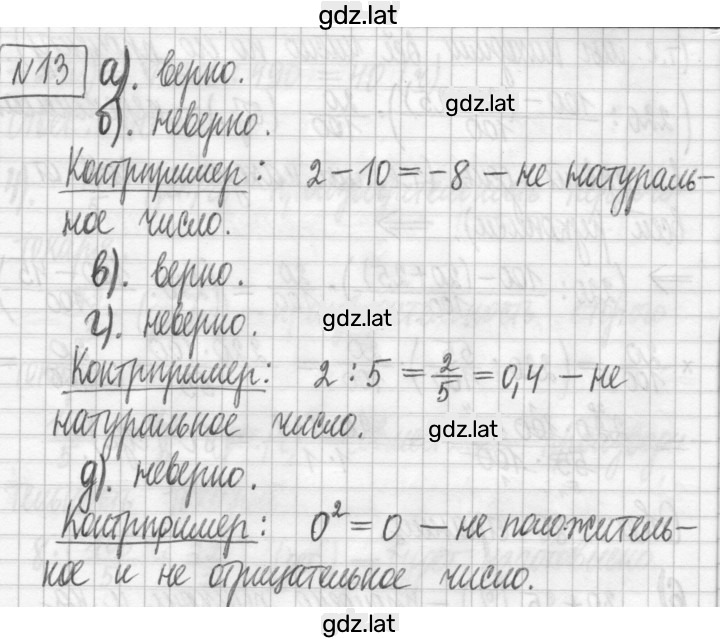 gdz.lat
№13 а). верно.
б). неверно. gdz.lat
Контрпример: 2 - 10 = -8 - не натураль-
ное число.
в). верно.
г). неверно. gdz.lat
Контрпример: 2 : 5 = 2/5 = 0,4 - не
натуральное число. gdz.lat
д). неверно.
Контрпример: 0² = 0 - не положитель-
ное и не отрицательное число.
gdz.lat